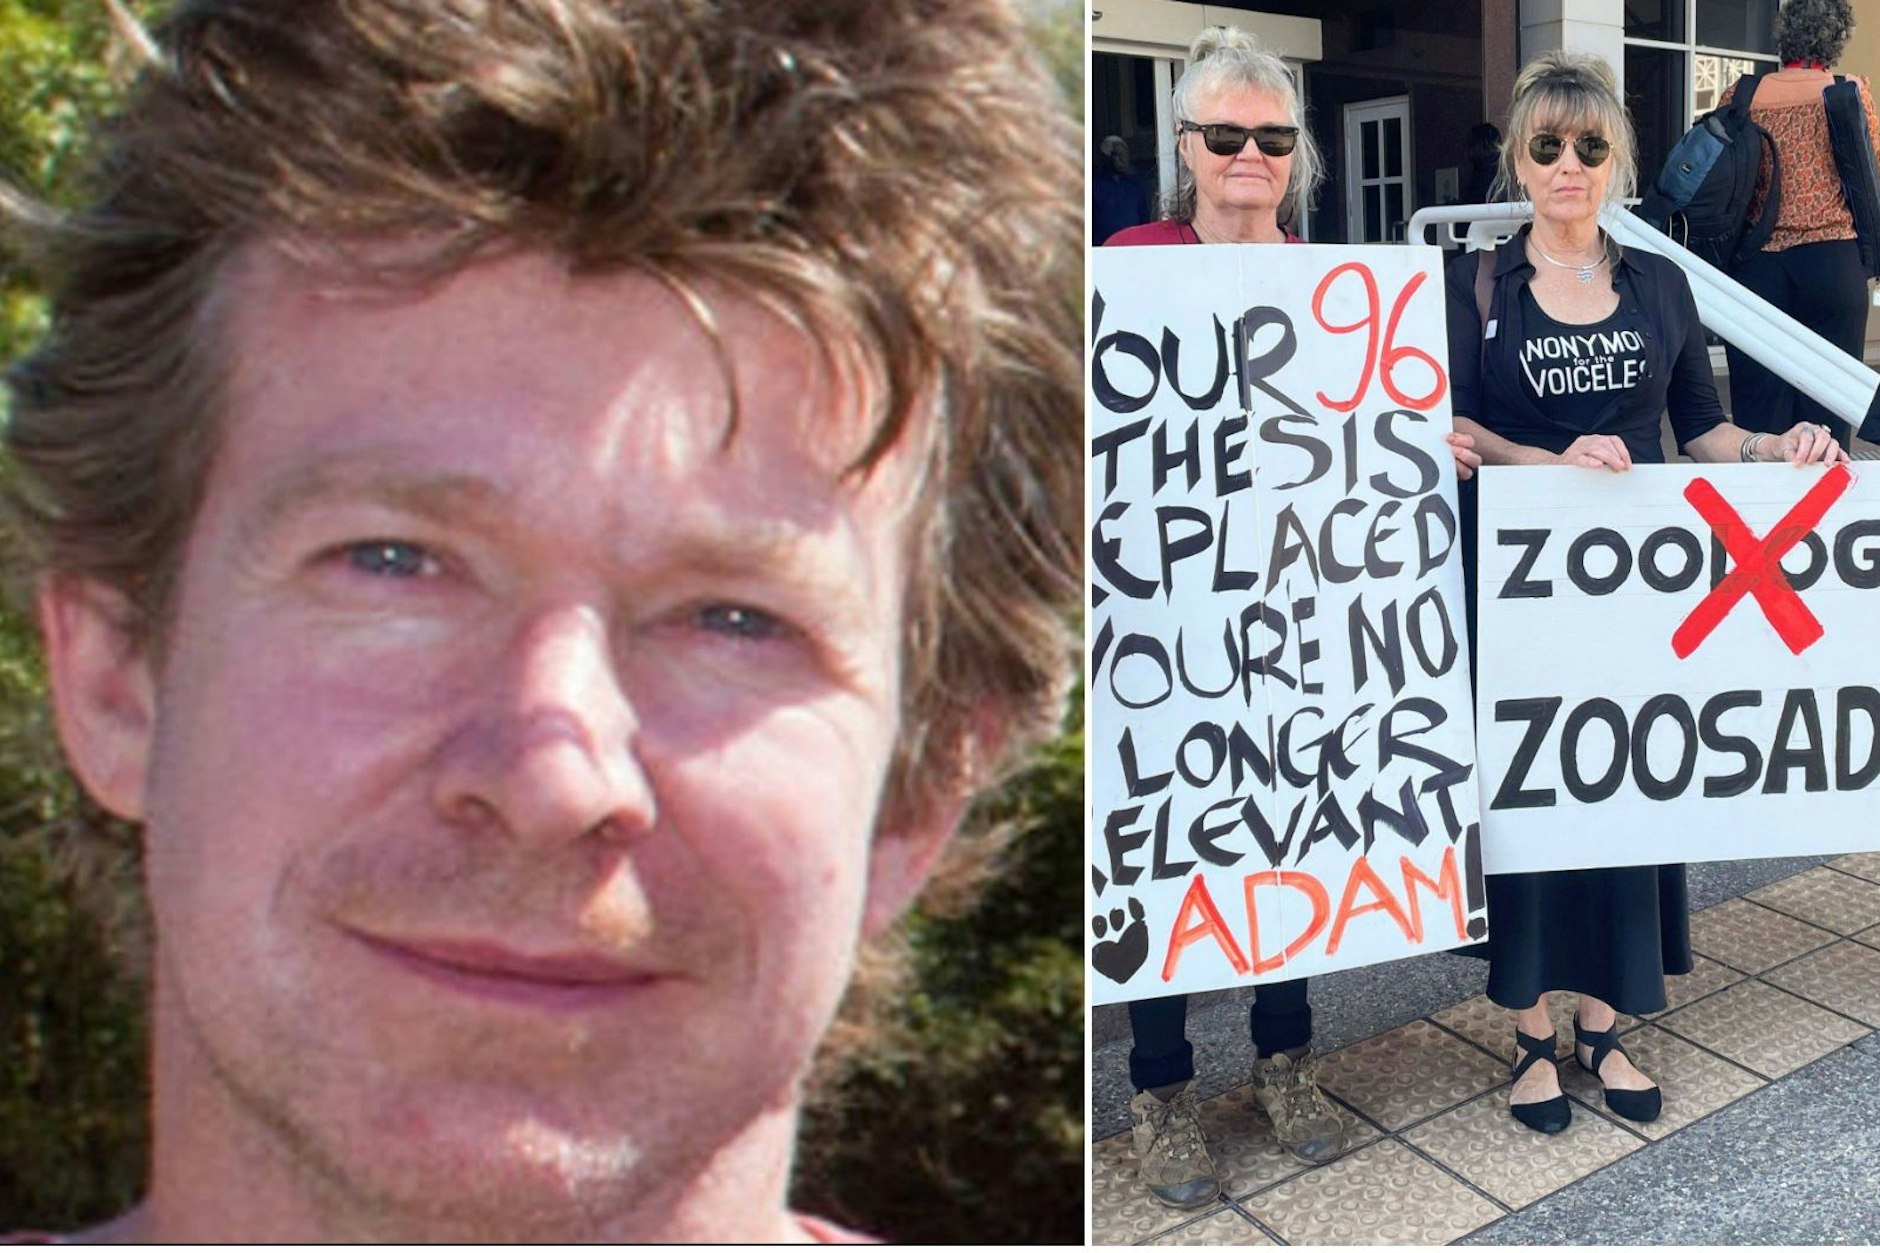 YOUR 96
THESIS
REPLACED
YOURE NO
LONGER
RELEVANT
ADAM!
ANONYMOU
for the
VOICELES
ZOOLOG
ZOOSAD